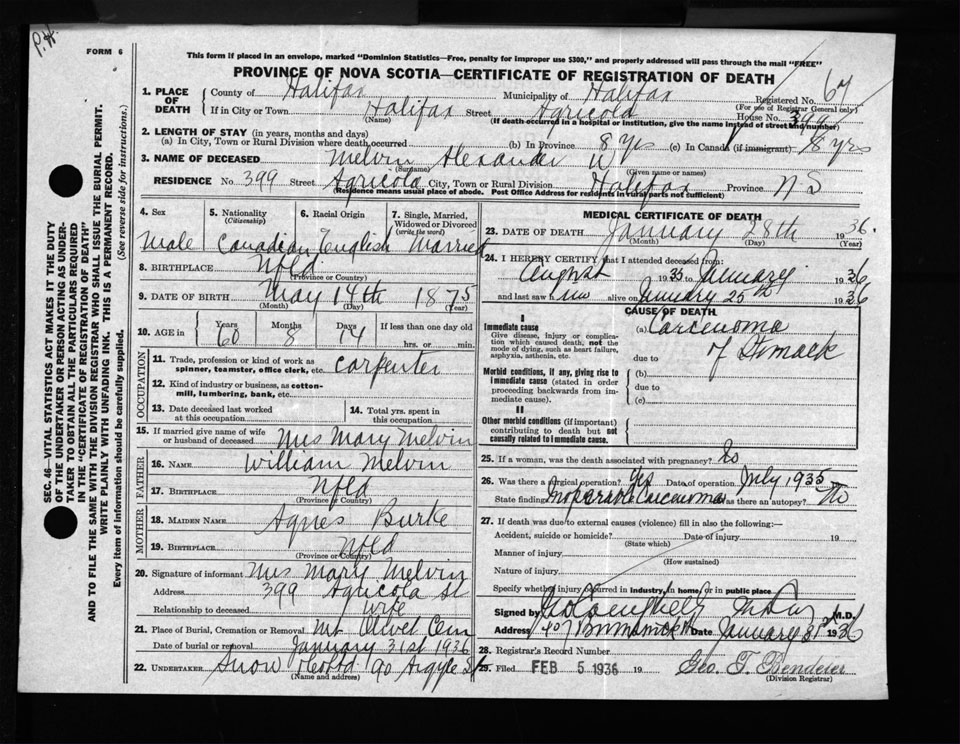 P.H.
FORM 6
This form if placed in an envelope, marked "Dominion Statistics—Free, penalty for improper use $300," and properly addressed will pass through the mail "FREE"
PROVINCE OF NOVA SCOTIA—CERTIFICATE OF REGISTRATION OF DEATH
SEC. 46—VITAL STATISTICS ACT MAKES IT THE DUTY
OF THE UNDERTAKER OR PERSON ACTING AS UNDER-
TAKER TO OBTAIN ALL THE PARTICULARS REQUIRED
IN THE "CERTIFICATE OF REGISTRATION OF DEATH"
AND TO FILE THE SAME WITH THE DIVISION REGISTRAR WHO SHALL ISSUE THE BURIAL PERMIT.
WRITE PLAINLY WITH UNFADING INK. THIS IS A PERMANENT RECORD.
Every item of information should be carefully supplied. (See reverse side for instructions.)
1. PLACE OF DEATH County of Halifax Municipality of Halifax Registered No. 67
(For use of Registrar General only)
If in City or Town Halifax Street Agricola House No. 399
(Name) (If death occurred in a hospital or institution, give the name instead of street and number)
2. LENGTH OF STAY (in years, months and days)
(a) In City, Town or Rural Division where death occurred (b) In Province 8 yrs (c) In Canada (if immigrant) 8 yrs
3. NAME OF DECEASED Melvin Alexander W
(Surname) (Given name or names)
RESIDENCE No. 399 Street Agricola City, Town or Rural Division Halifax Province N S
(Residence means usual place of abode. Post Office Address for residents in rural parts not sufficient)
4. Sex 5. Nationality (Citizenship) 6. Racial Origin 7. Single, Married, Widowed or Divorced (write the word)
Male Canadian English Married
8. BIRTHPLACE Nfld
(Province or Country)
9. DATE OF BIRTH May 14th 1875
(Month) (Day) (Year)
10. AGE in Years Months Days If less than one day old
60 8 14 hrs. or min.
OCCUPATION
11. Trade, profession or kind of work as spinner, teamster, office clerk, etc. Carpenter
12. Kind of industry or business, as cotton-mill, lumbering, bank, etc.
13. Date deceased last worked at this occupation 14. Total yrs. spent in this occupation
15. If married give name of wife or husband of deceased Mrs Mary Melvin
FATHER
16. NAME William Melvin
17. BIRTHPLACE Nfld
(Province or Country)
MOTHER
18. MAIDEN NAME Agnes Burke
19. BIRTHPLACE Nfld
(Province or Country)
20. Signature of informant Mrs Mary Melvin
Address 399 Agricola St
Relationship to deceased wife
21. Place of Burial, Cremation or Removal Mt Olivet Cem
Date of burial or removal January 31st 1936
22. UNDERTAKER Snow 90 Argyle St
(Name and address)
MEDICAL CERTIFICATE OF DEATH
23. DATE OF DEATH January 28th 1936.
(Month) (Day) (Year)
24. I HEREBY CERTIFY that I attended deceased from:
August 1935 to January 1936
and last saw him alive on January 25th 1936
CAUSE OF DEATH
I
Immediate cause
Give disease, injury or complication which caused death, not the mode of dying, such as heart failure, asphyxia, asthenia, etc.
(a) Carcenoma
of Stomack
due to
Morbid conditions, if any, giving rise to immediate cause (stated in order proceeding backwards from immediate cause).
(b)
due to
(c)
II
Other morbid conditions (if important) contributing to death but not causally related to immediate cause.
25. If a woman, was the death associated with pregnancy? No
26. Was there a surgical operation? Yes Date of operation July 1935
State findings Inoperable Carcenoma Was there an autopsy? No
27. If death was due to external causes (violence) fill in also the following:—
Accident, suicide or homicide? Date of injury 19
(State which)
Manner of injury
(How sustained)
Nature of injury
Specify whether injury occurred in industry, in home, or in public place
Signed by M.D.
Address 407 Brunswick Date January 31st 1936
28. Registrar's Record Number
29. Filed FEB 5 1936 19 Geo. T. Bendeier
(Division Registrar)